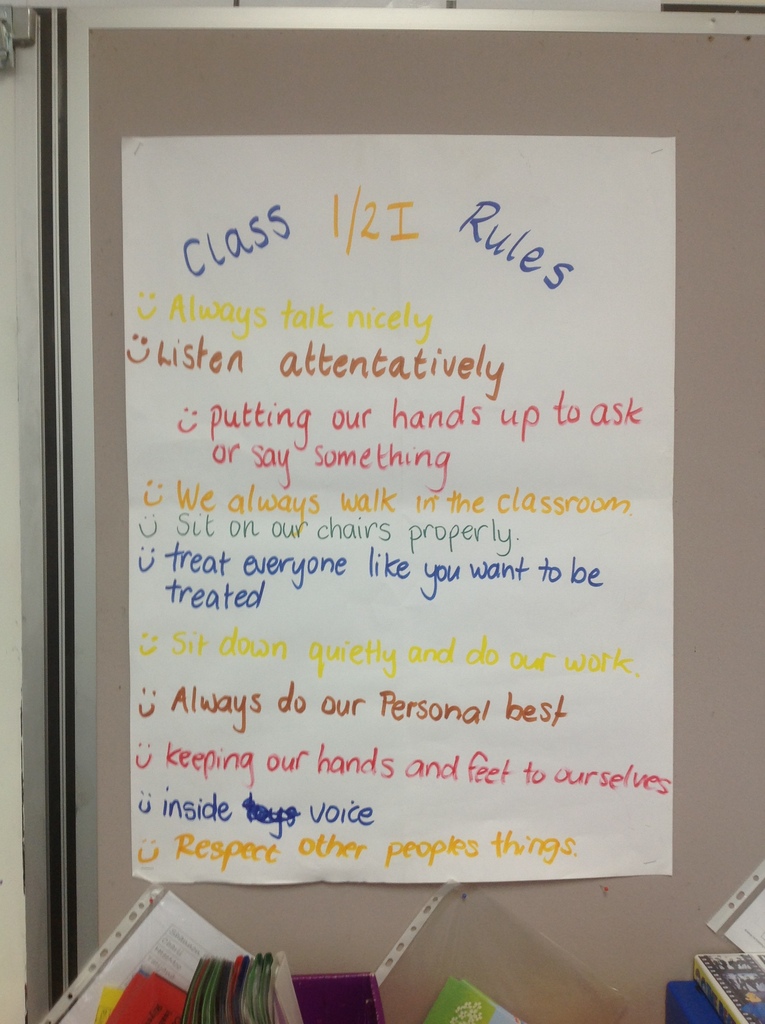 Class 1/2I Rules
Always talk nicely
Listen attentatively
putting our hands up to ask
or say something
We always walk in the classroom.
Sit on our chairs properly.
treat everyone like you want to be
treated
Sit down quietly and do our work.
Always do our Personal best
keeping our hands and feet to ourselves
inside voice
Respect other peoples things.